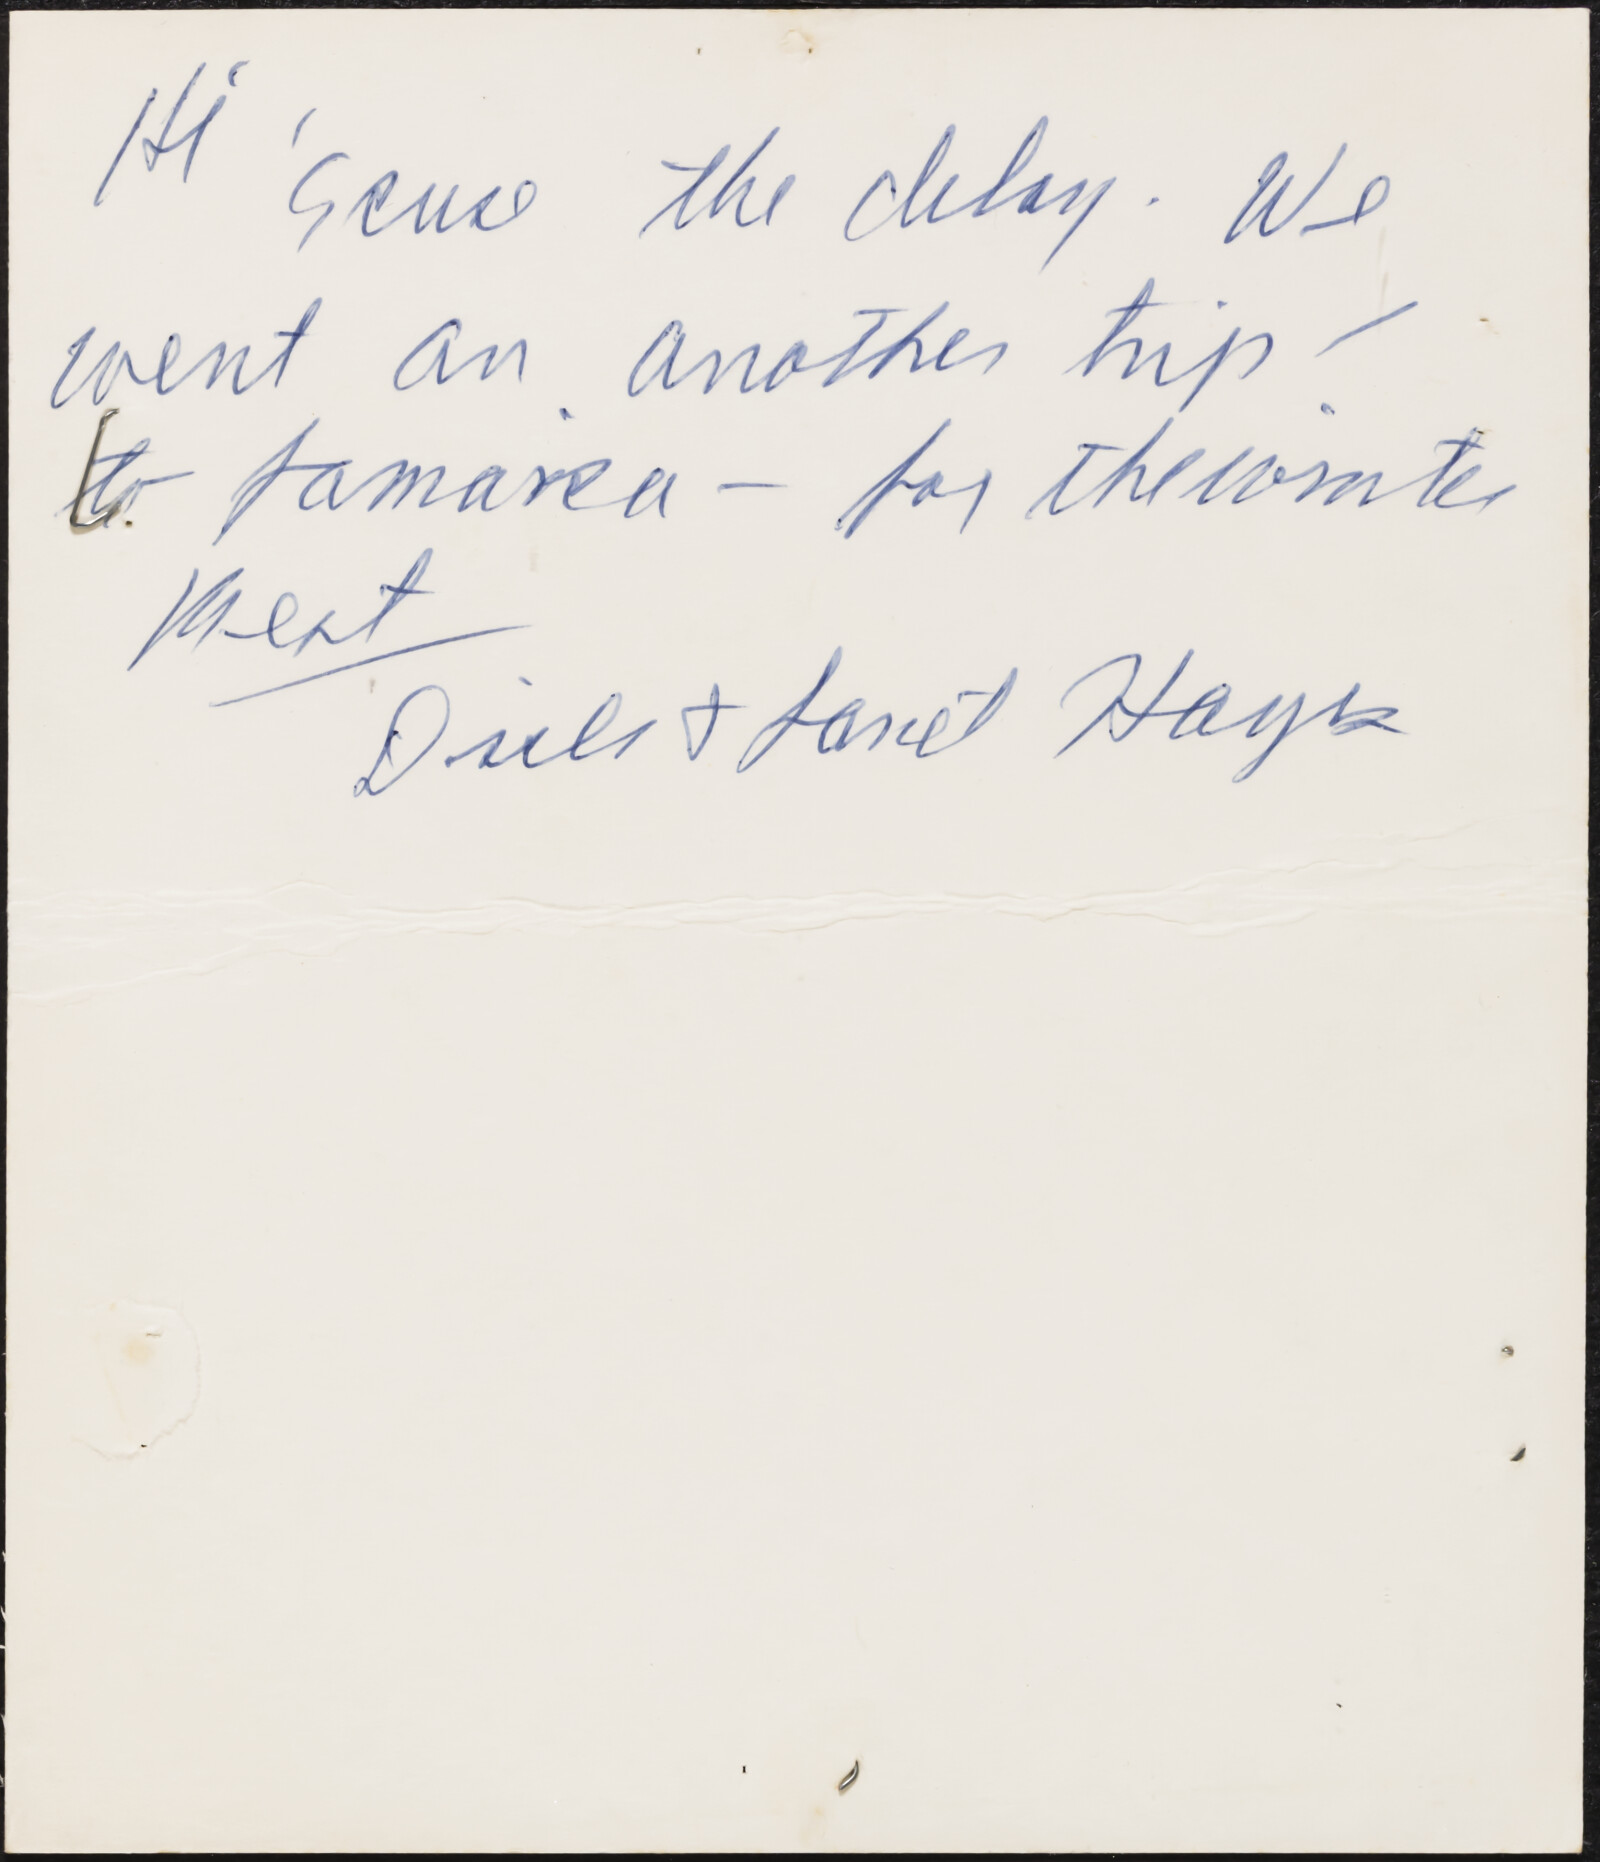 Hi 'Scuse the delay. We
went on another trip -
to Jamaica - for the winter
Meat
& Janet Hays